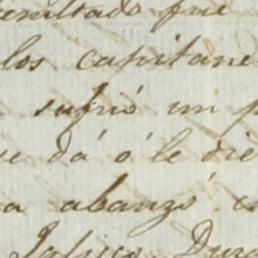 resultado fue
los capitane
sufrió un p
se dá ó le die
a abanzó
Jalisco Dura